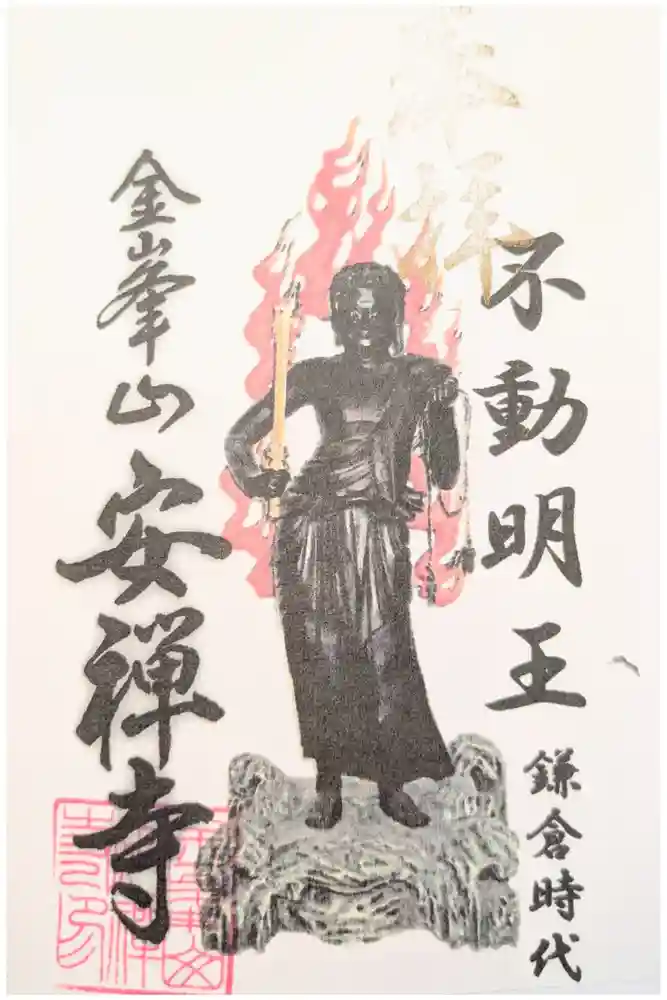 奉拝
不動明王
鎌倉時代
金峯山
安禅寺